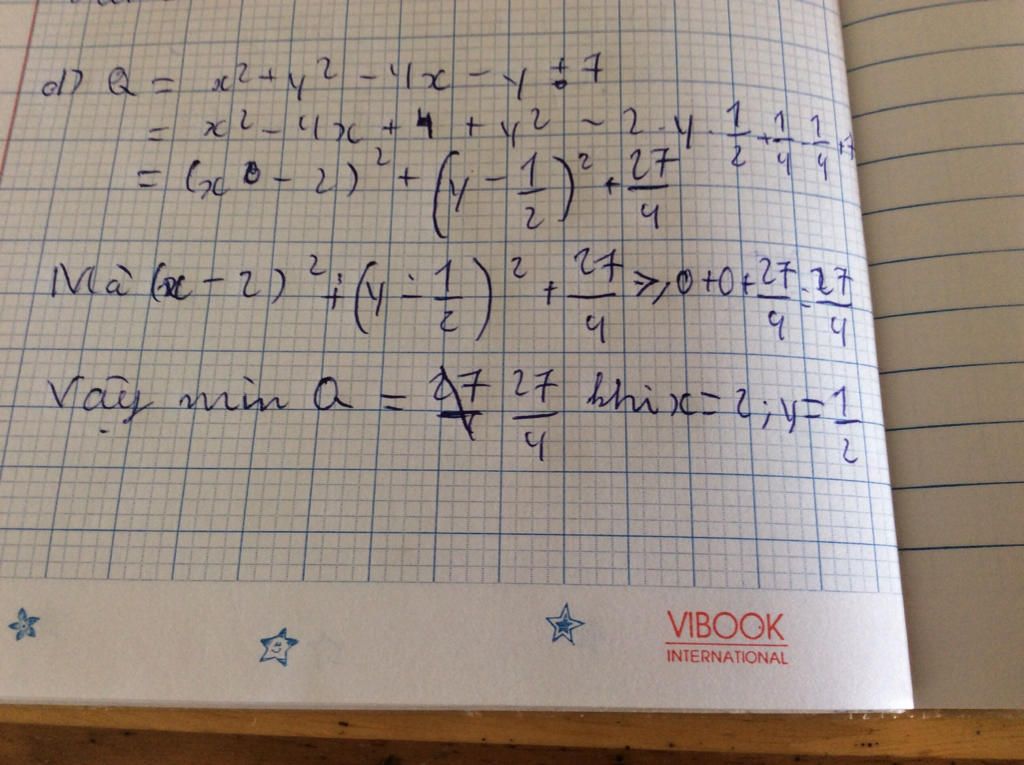 d) Q = x² + y² - 4x - y + 7
= x² - 4x + 4 + y² - 2 . y . 1/2 + 1/4 - 1/4 + 7
= (x - 2)² + (y - 1/2)² + 27/4
Mà (x - 2)² + (y - 1/2)² + 27/4 ≥ 0 + 0 + 27/4 = 27/4
Vậy min Q = 27/4 khi x = 2 ; y = 1/2
VIBOOK
INTERNATIONAL